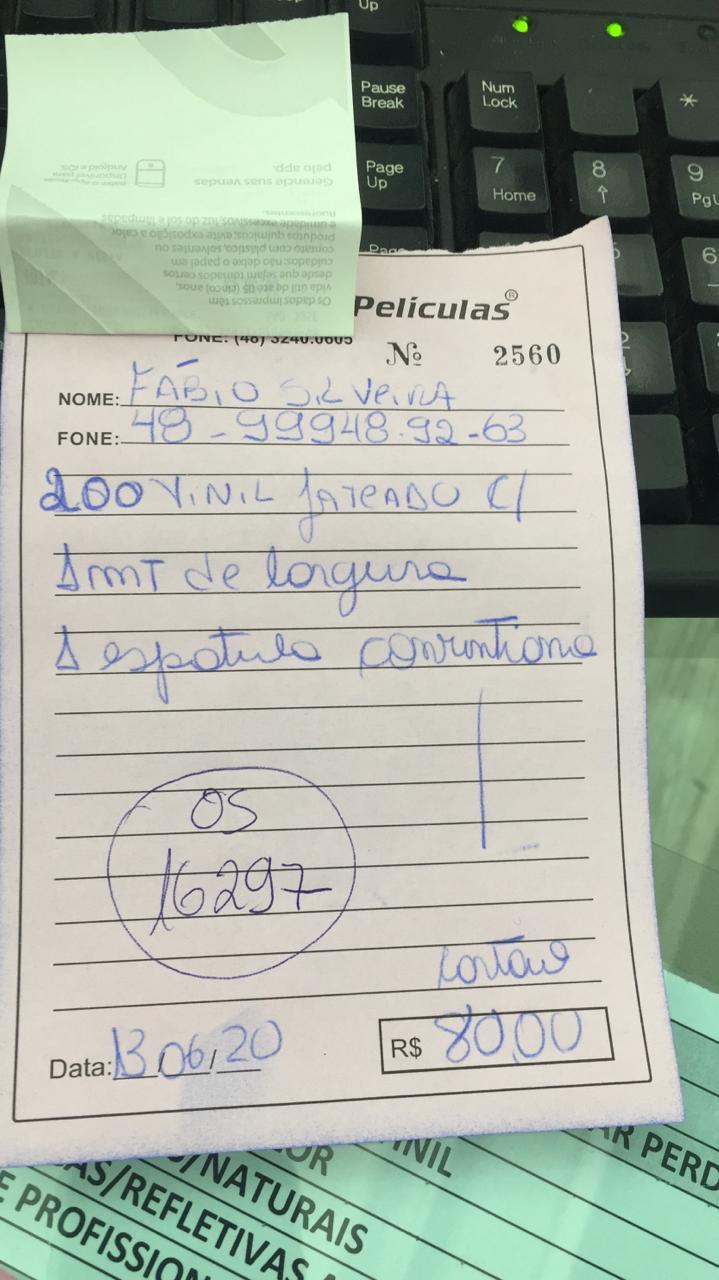 Up
Pause
Break
Num
Lock
*
Page
Up
7
Home
8
↑
9
PgU
6
Gerencie suas vendas
pelo app.
Disponível para
Android e iOS.
Os dados impressos têm
vida útil de até 05 (cinco) anos,
desde que sejam tomados certos
cuidados: não deixe o papel em
contato com plástico, solventes ou
produtos químicos; evite exposição a calor
e umidade excessivos, luz do sol e lâmpadas
fluorescentes.
Películas®
FONE: (48) 3240.0605
Nº 2560
NOME: FÁBIO SILVEIRA
FONE: 48-99948.92-63
200 VINIL JATEADO C/
1 mT de largura
1 espatula
OS
16297
cartão
Data: 13/06/20
R$ 80,00
INIL
AR PERD
/NATURAIS
AS/REFLETIVAS
E PROFISSION